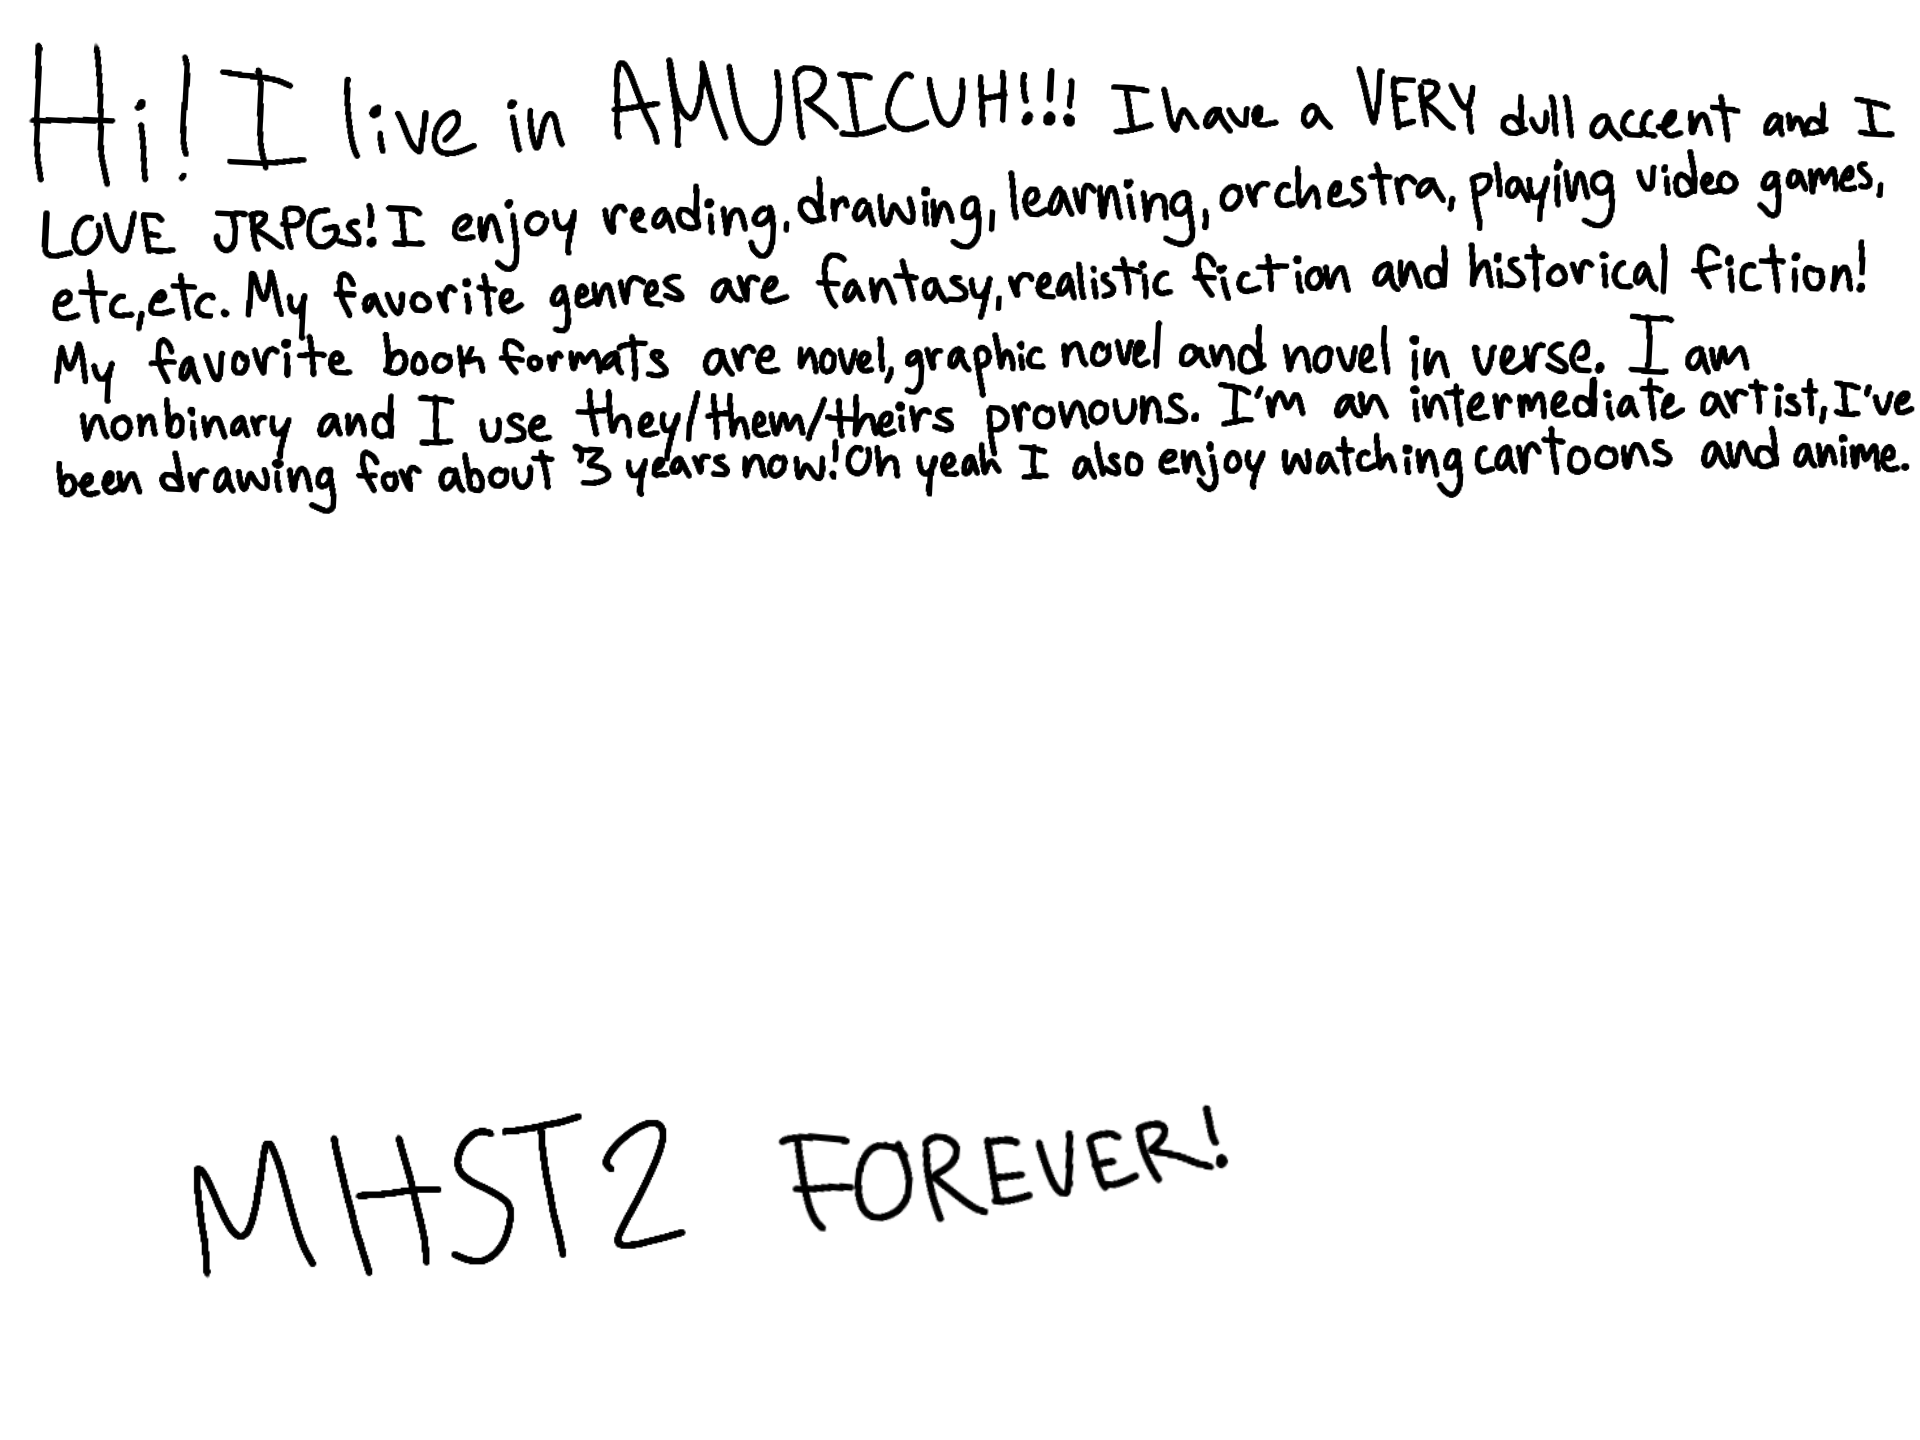 Hi! I live in AMURICUH!!! I have a VERY dull accent and I
LOVE JRPGs! I enjoy reading, drawing, learning, orchestra, playing video games,
etc,etc. My favorite genres are fantasy, realistic fiction and historical fiction!
My favorite book formats are novel, graphic novel and novel in verse. I am
nonbinary and I use they/them/theirs pronouns. I'm an intermediate artist, I've
been drawing for about 3 years now! Oh yeah I also enjoy watching cartoons and anime.
MHST2 FOREVER!